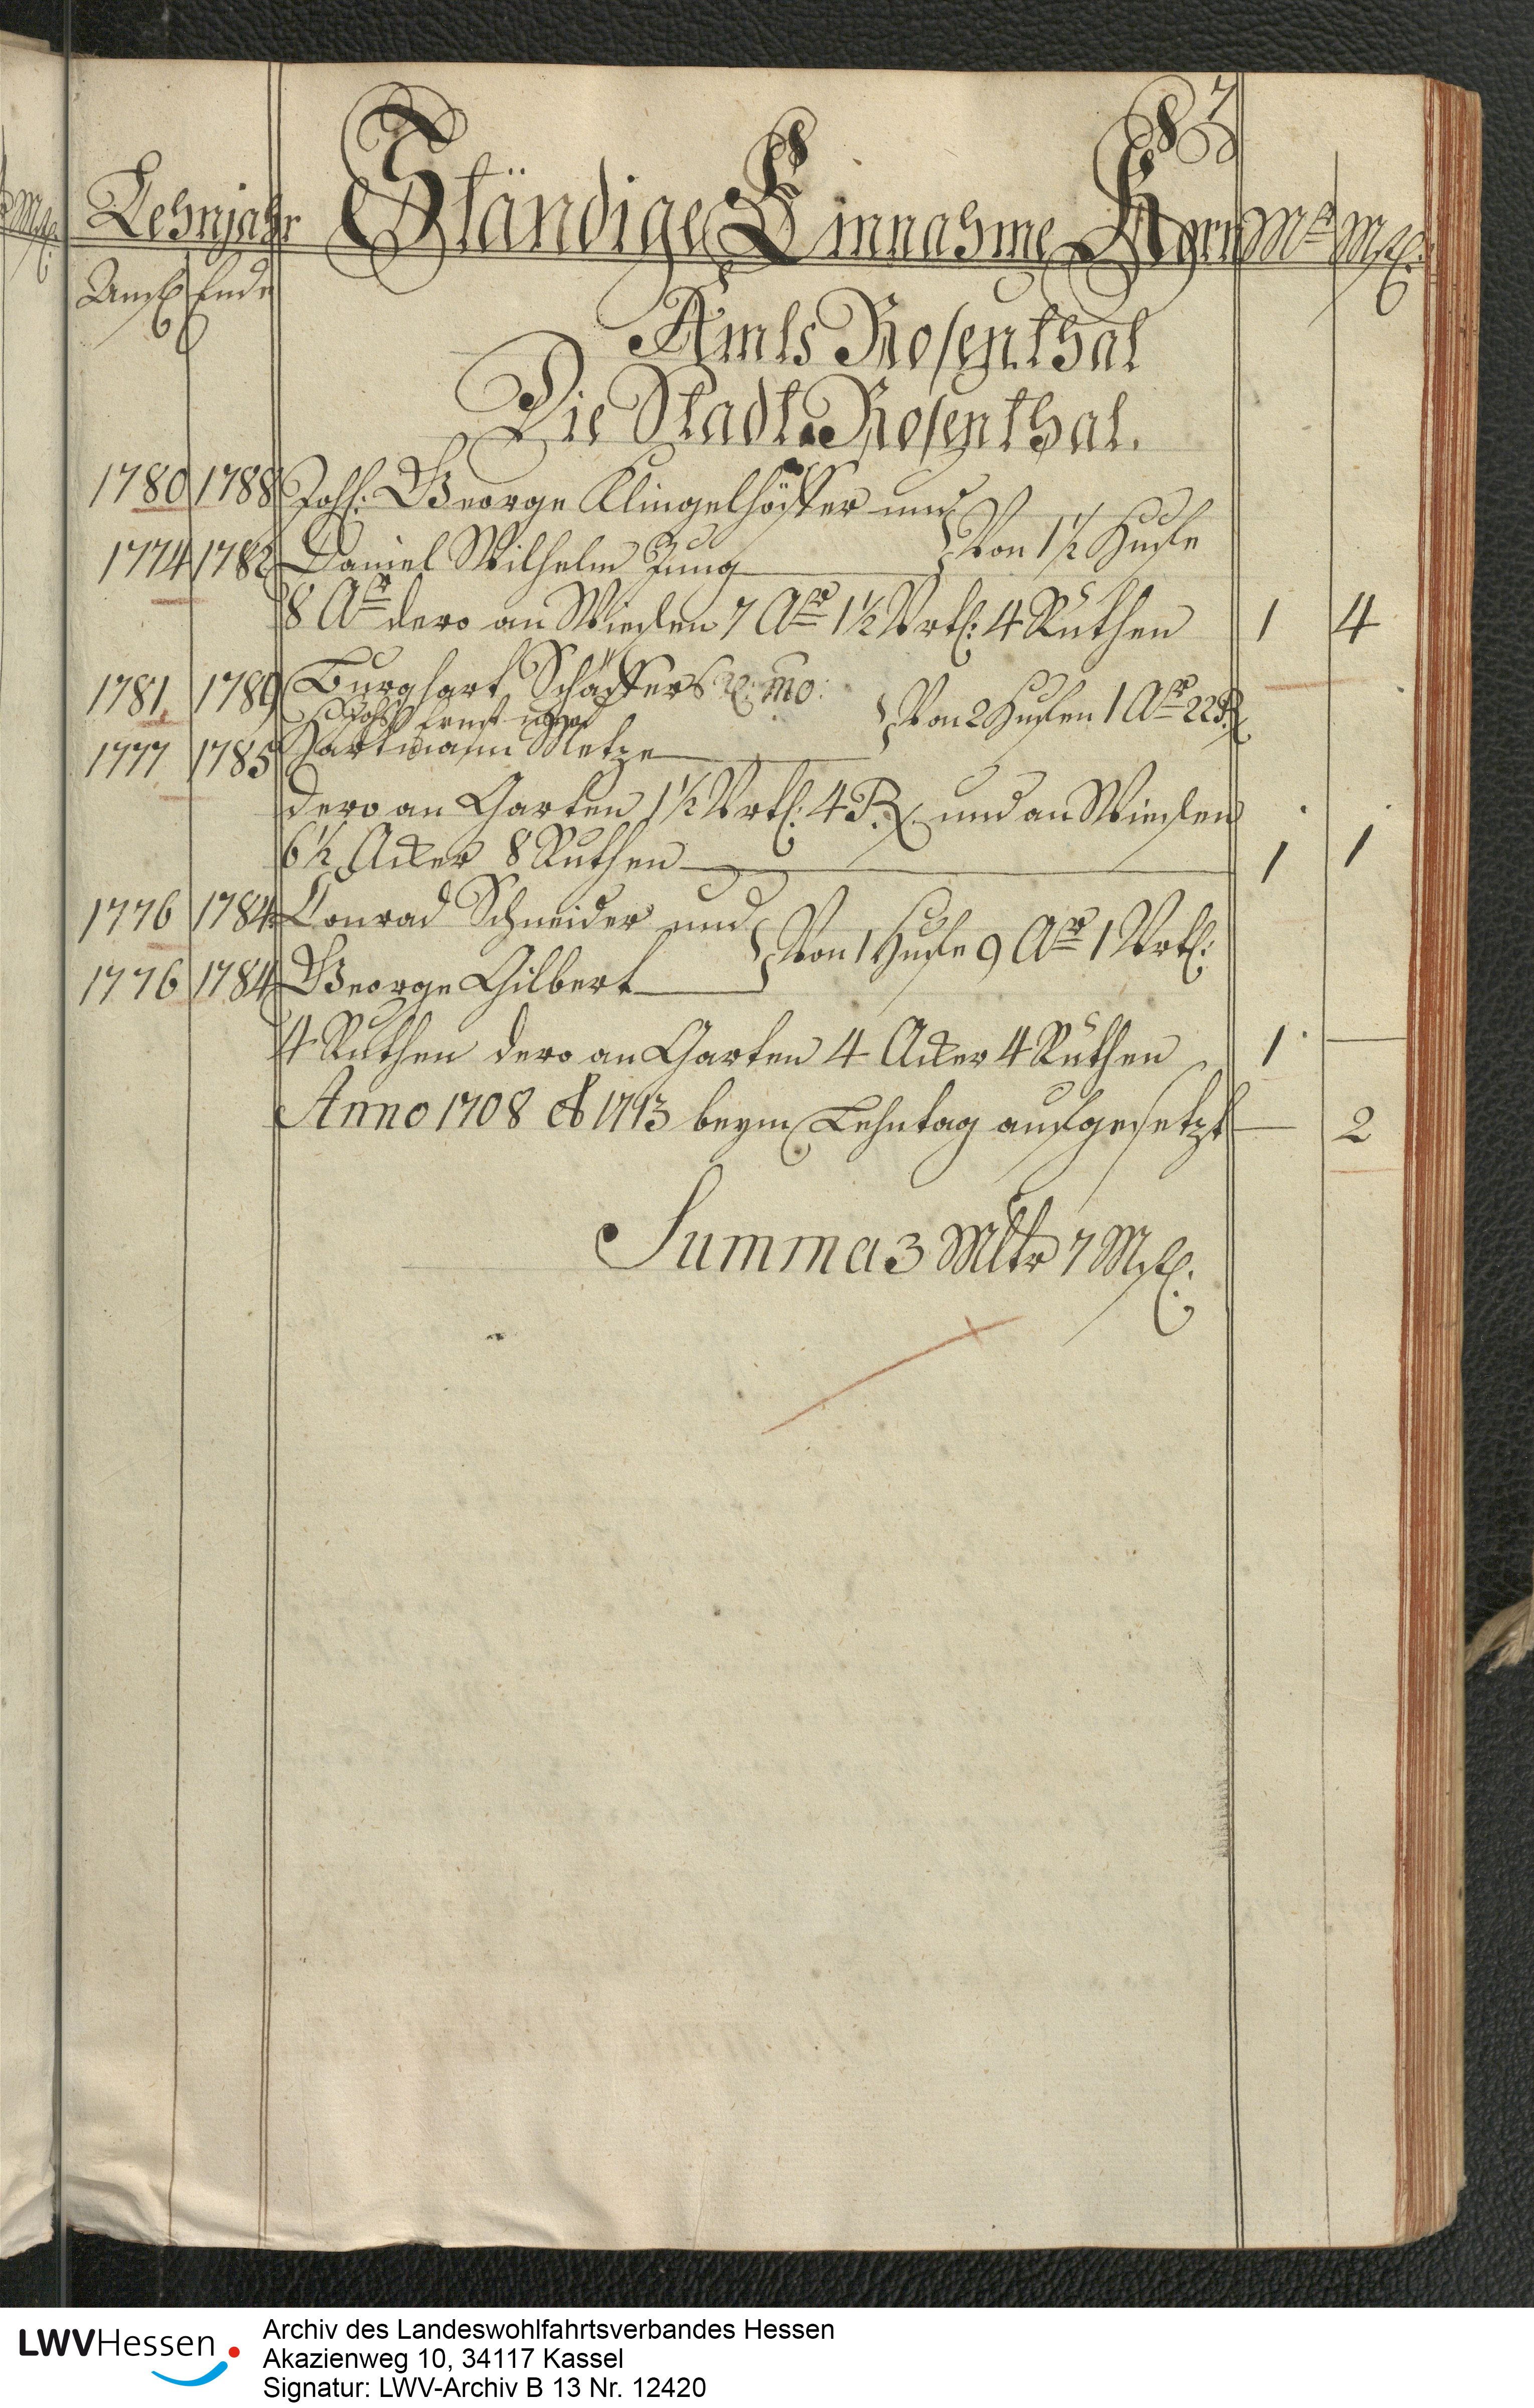 7
Lehnjahr Ständige Einnahme Korn Mltr Mst:
Anfg Ende
Amts Rosenthal
Die Stadt Rosenthal.
1780 1788 Joh: George Klingelhöffer und
1774 1782 Daniel Wilhelm Jung } Von 1½ Hufe
8 Ar dero an Wiesen 7 Ar 1½ Vrtl: 4 Ruthen 1 4
1781 1789 Burghart Schäffers mo:
Johs Ernst und
1777 1785 Hartmann Metze } Von 2 Hufen 1 Ar 22 R
dero an Garten 1½ Vrtl: 4 R. und an Wiesen
6½ Acker 8 Ruthen 1 1
1776 1784 Conrad Schneider und
1776 1784 George Gilbert } Von 1 Hufe 9 Ar 1 Vrtl:
4 Ruthen dero an Garten 4 Acker 4 Ruthen 1 —
Anno 1708 & 1713 beym Lehntag aufgesetzt — 2
Summa 3 Mltr 7 Mst:
LWVHessen
Archiv des Landeswohlfahrtsverbandes Hessen
Akazienweg 10, 34117 Kassel
Signatur: LWV-Archiv B 13 Nr. 12420